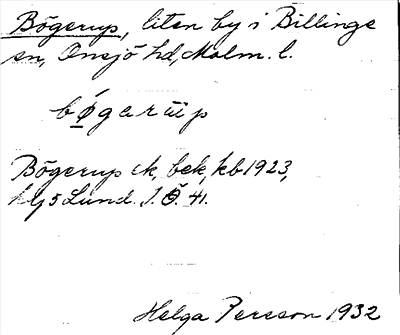 Bögerup, liten by i Billinge
sn, Onsjö hd, Malm. l.
bǿgarüp
Bögerup ek, bek, kb 1923,
hlj 5 Lund. I. Ö. 41.
Helga Persson 1932